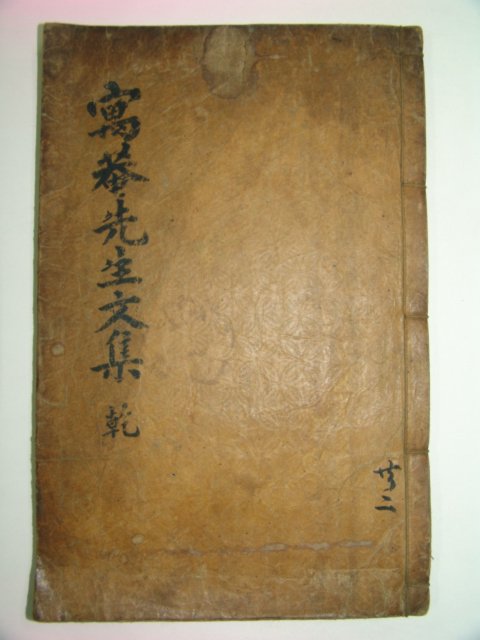 寓菴先生文集 乾
共二